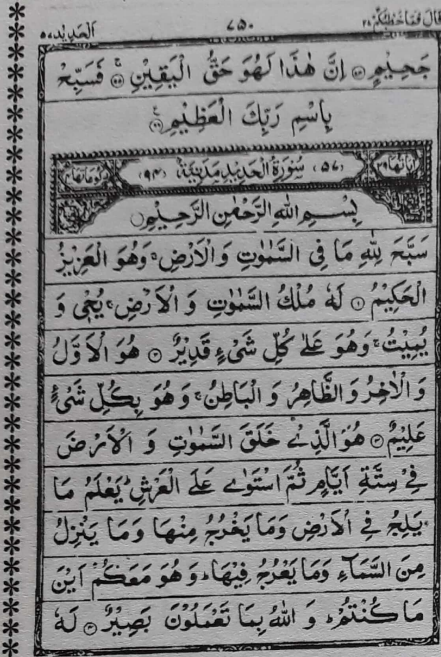 قَالَ فَمَا خَطْبُكُمْ ٢٧ ٧٥٠ اَلْحَدِيْد ٥٧
جَحِيْمٍ ۝ اِنَّ هٰذَا لَهُوَ حَقُّ الْيَقِيْنِ ۝ فَسَبِّحْ
بِاسْمِ رَبِّكَ الْعَظِيْمِ ۝
اٰيَاتُهَا ٢٩ (٥٧) سُوْرَةُ الْحَدِيْدِ مَدَنِيَّةٌ (٩٤) رُكُوْعَاتُهَا ٤
بِسْمِ اللهِ الرَّحْمٰنِ الرَّحِيْمِ
سَبَّحَ لِلّٰهِ مَا فِى السَّمٰوٰتِ وَ الْاَرْضِ ۚ وَهُوَ الْعَزِيْزُ
الْحَكِيْمُ ۝١ لَهٗ مُلْكُ السَّمٰوٰتِ وَ الْاَرْضِ ۚ يُحْيٖ وَ
يُمِيْتُ ۚ وَهُوَ عَلٰى كُلِّ شَىْءٍ قَدِيْرٌ ۝٢ هُوَ الْاَوَّلُ
وَ الْاٰخِرُ وَ الظَّاهِرُ وَ الْبَاطِنُ ۚ وَ هُوَ بِكُلِّ شَىْءٍ
عَلِيْمٌ ۝٣ هُوَ الَّذِىْ خَلَقَ السَّمٰوٰتِ وَ الْاَرْضَ
فِىْ سِتَّةِ اَيَّامٍ ثُمَّ اسْتَوٰى عَلَى الْعَرْشِ ؕ يَعْلَمُ مَا
يَلِجُ فِى الْاَرْضِ وَمَا يَخْرُجُ مِنْهَا وَمَا يَنْزِلُ
مِنَ السَّمَآءِ وَمَا يَعْرُجُ فِيْهَا ؕ وَ هُوَ مَعَكُمْ اَيْنَ
مَا كُنْتُمْ ؕ وَ اللهُ بِمَا تَعْمَلُوْنَ بَصِيْرٌ ۝٤ لَهٗ